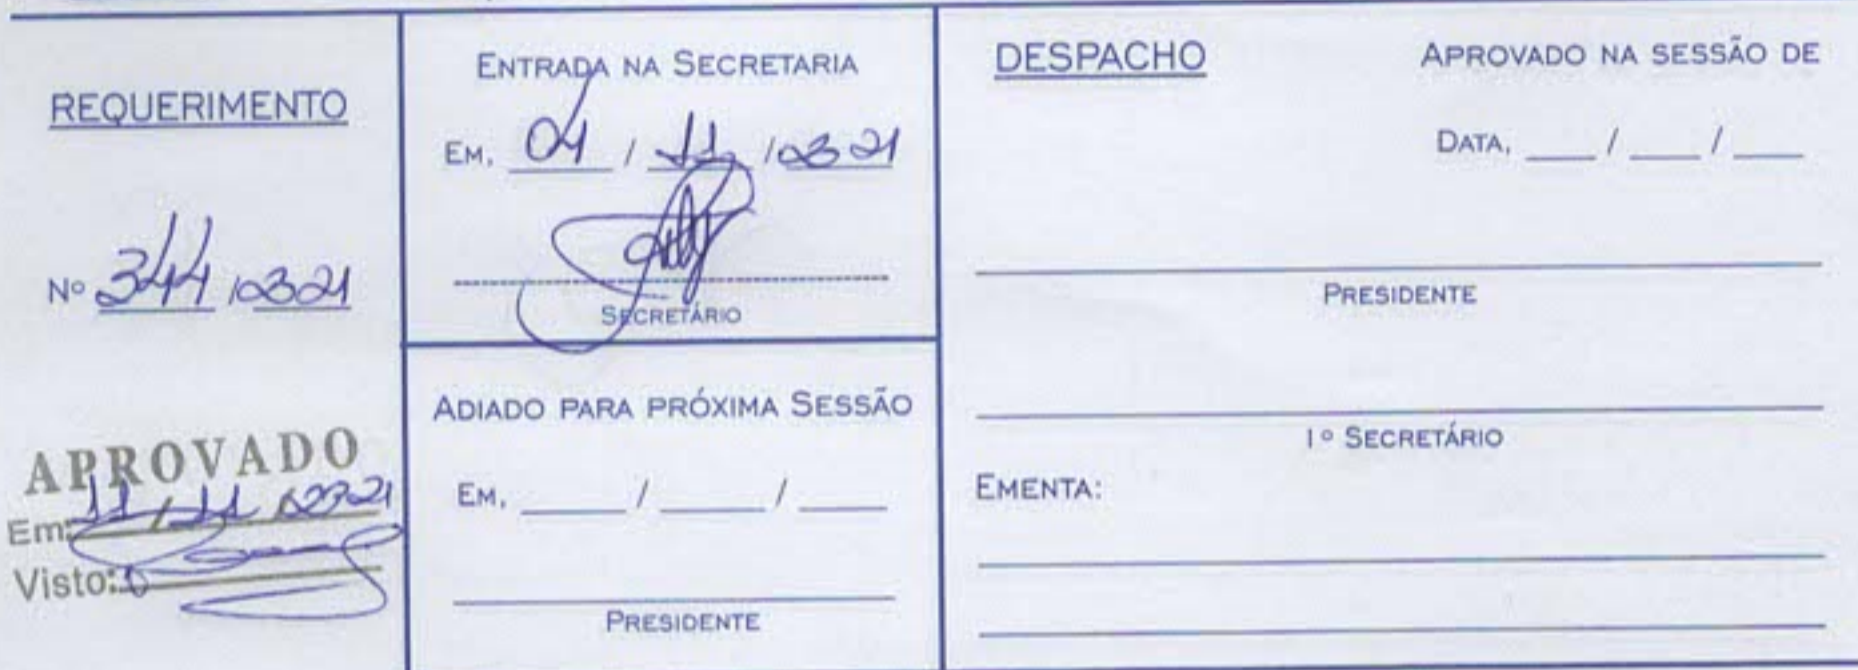 REQUERIMENTO
Nº 344/2021
APROVADO
Em: 11/11/2021
Visto:
ENTRADA NA SECRETARIA
EM, 04/11/2021
SECRETÁRIO
ADIADO PARA PRÓXIMA SESSÃO
EM, ____/____/____
PRESIDENTE
DESPACHO
APROVADO NA SESSÃO DE
DATA, ___/___/___
PRESIDENTE
1º SECRETÁRIO
EMENTA: